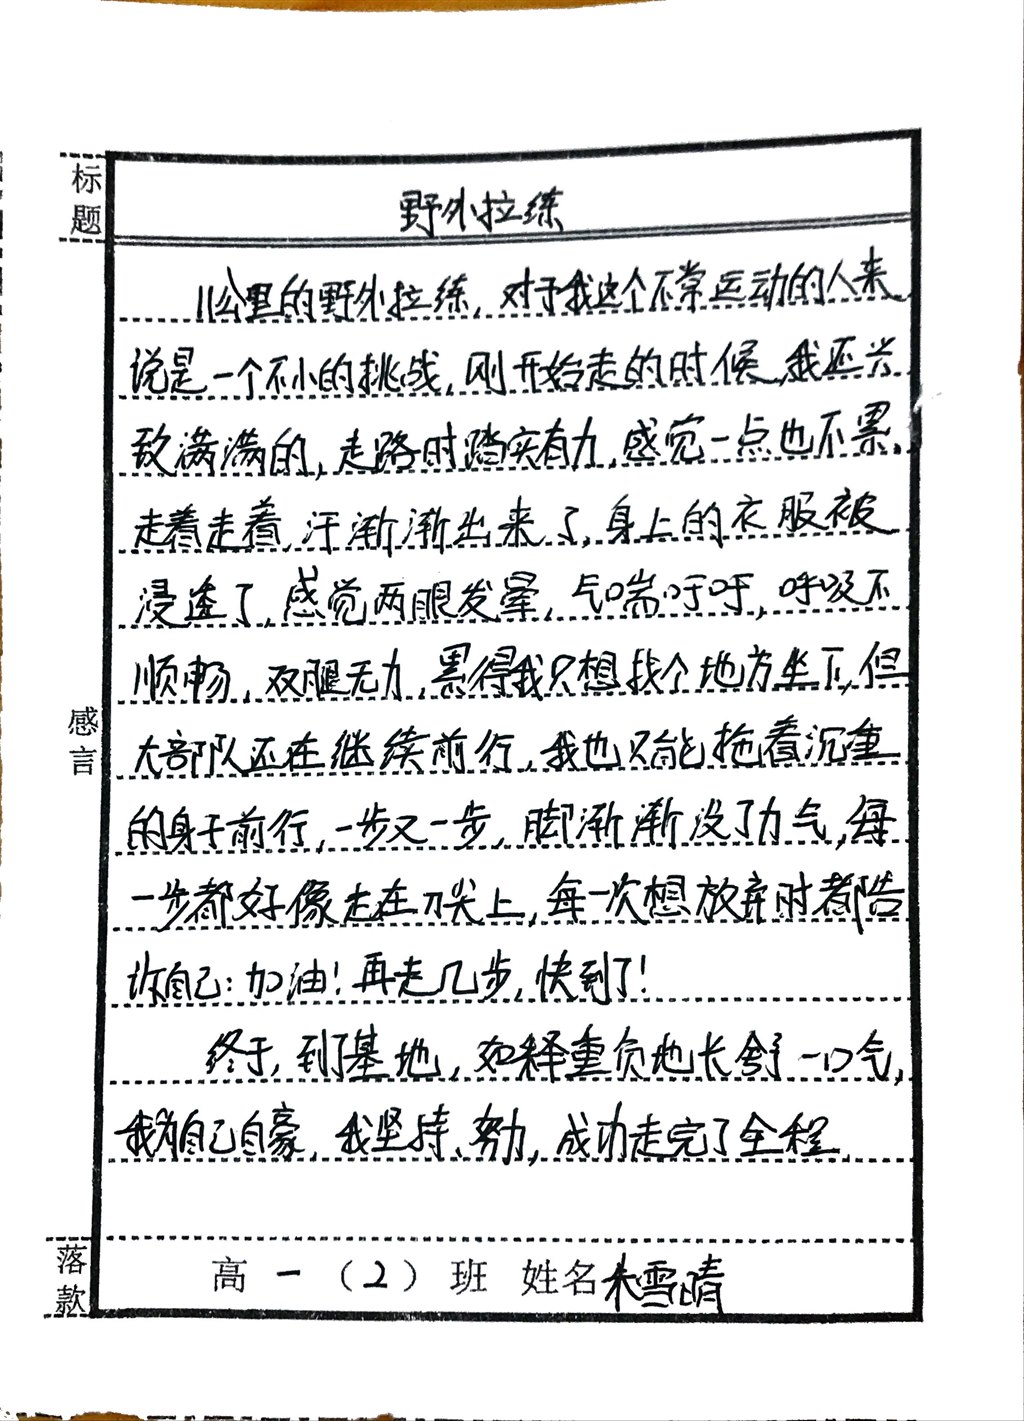 标题
野外拉练
11公里的野外拉练,对于我这个不常运动的人来
说是一个不小的挑战,刚开始走的时候,我还兴
致满满的,走路时踏实有力,感觉一点也不累,
走着走着,汗渐渐出来了,身上的衣服被
浸透了,感觉两眼发晕,气喘吁吁,呼吸不
顺畅,双腿无力,累得我只想找个地方坐下,但
大部队还在继续前行,我也只能拖着沉重
的身子前行,一步又一步,脚渐渐没了力气,每
一步都好像走在刀尖上,每一次想放弃时都告
诉自己:加油!再走几步,快到了!
终于,到了基地,如释重负地长舒一口气,
我为自己自豪,我坚持、努力,成功走完了全程.
感言
落款
高一(2)班 姓名朱雪晴